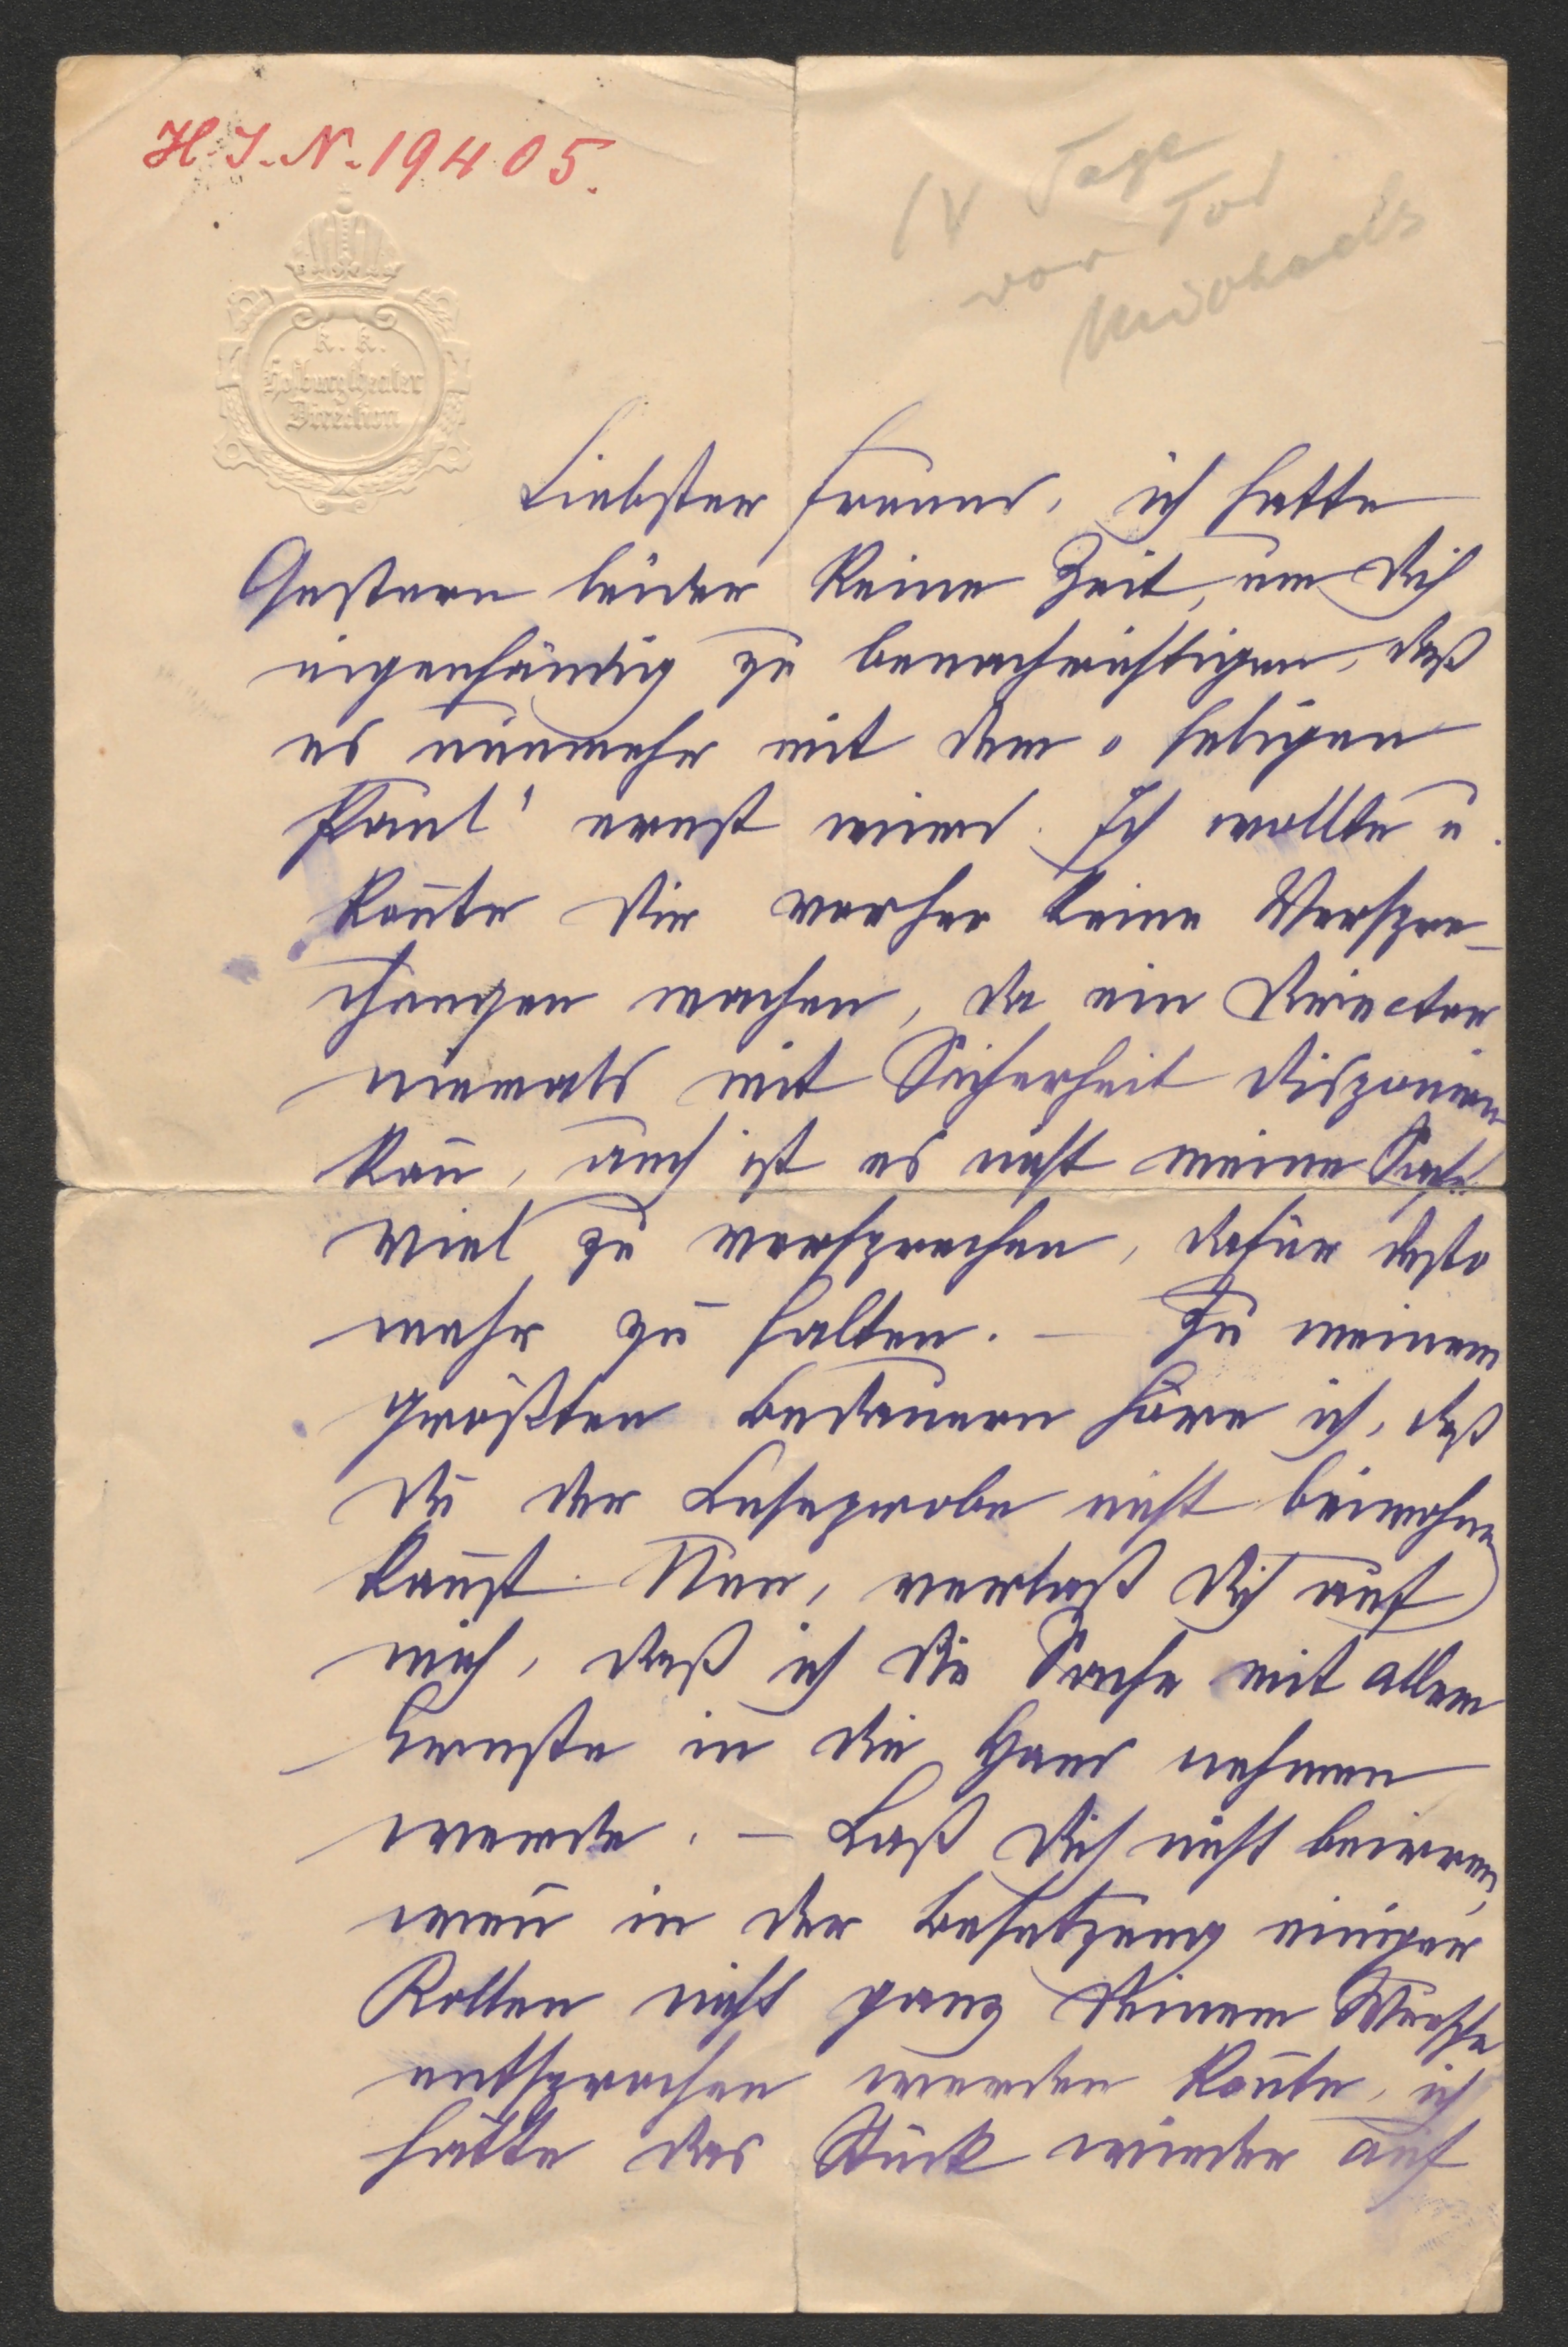 H.I.N. 19405.
IV Tage
vor Tod
k. k.
Hofburgtheater
Direction
Liebster Freund, ich hatte
Gestern leider keine Zeit, um Dich
eigenhändig zu benachrichtigen, daß
es nunmehr mit dem „seligen
Paul' ernst wird. Ich wollte u.
kon̄te Dir vorher keine Verspre-
chungen machen, da ein Director
niemals mit Sicherheit disponiren
kan̄, auch ist es nicht meine Sache
viel zu versprechen, dafür desto
mehr zu halten. — Zu meinem
größten Bedauern höre ich, daß
Du der Leseprobe nicht beiwohnen
kan̄st. Nun, verlaß Dich auf
mich, daß ich die Sache mit allem
Ernste in die Hand nehmen
werde. — Laß Dich nicht beirren,
wen̄ in der Besetzung einiger
Rollen nicht ganz Deinem Wunsche
entsprochen werden kon̄te, ich
hätte das Stück wieder auf